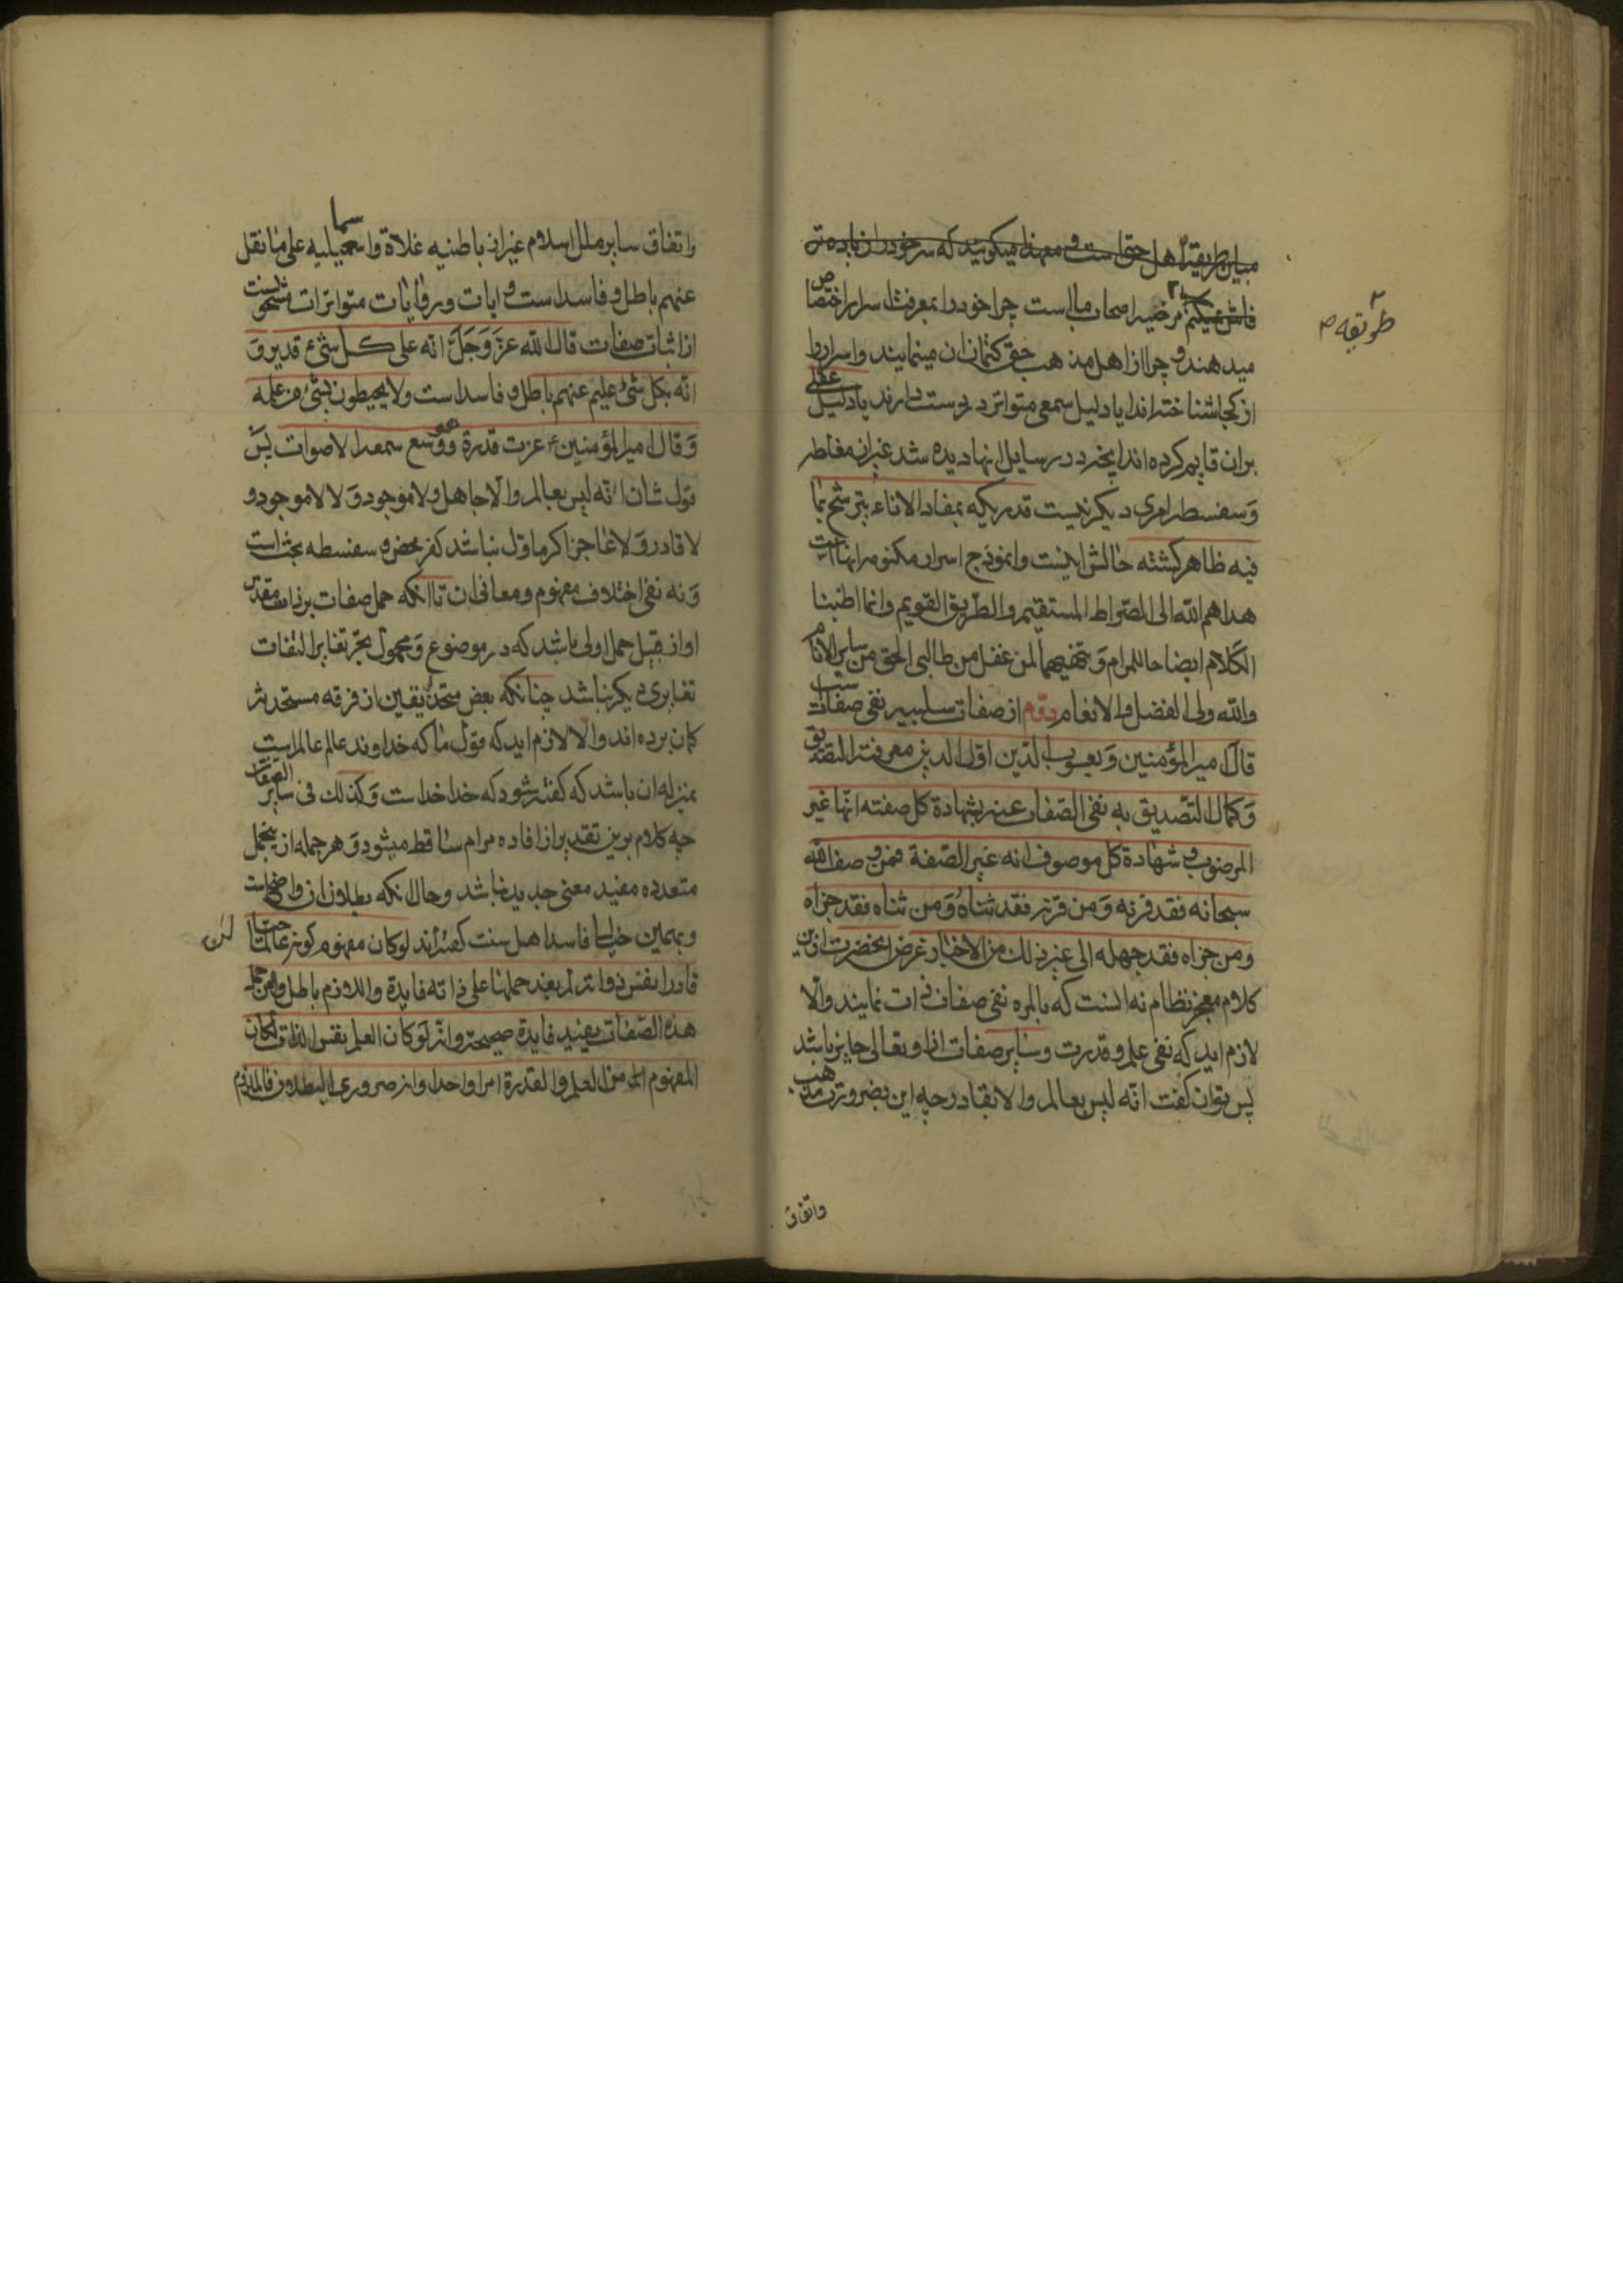 مباین طریقه اهل حق است و معهذا میکویند که سر خود را زیاده تر
فاش نمیکنیم مرضیه اصحاب ما است چرا خود را بمعرفت اسرار اختصاص
میدهند و چرا از اهل مذهب حق کتمان ان مینمایند و اسرار را
از کجا شناخته اند ایا دلیل سمعی متواتر در دست دارند یا دلیل عقلی
بران قایم کرده اند انچه در رسایل انها دیده شد غیر از مغالطه
و سفسطه امری دیکر نیست قدریکه بمفاد الاناء یترشح بما
فیه ظاهر کشته حالش اینست و انموذج اسرار مکنومه انها است
هداهم الله الی الصراط المستقیم والطریق القویم وانما اطنبنا
الکلام ایضاحا للمرام و تفهیما لمن غفل من طالبی الحق من سایر الانام
والله ولی الفضل والانعام دوم از صفات سلبیه نفی صفات است
قال امیر المؤمنین و یعسوب الدین اول الدین معرفته التصدیق
و کمال التصدیق به نفی الصفات عنه بشهادة کل صفته انها غیر
الموصوف و شهادة کل موصوف انه غیر الصفة فمن وصف الله
سبحانه فقد قرنه و من قرنه فقد ثناه و من ثناه فقد جزاه
ومن جزاه فقد جهله الی غیر ذلک من الاخبار غرض انحضرت ازین
کلام معجز نظام نه انست که بالمره نفی صفات ذات نمایند والا
لازم اید که نفی علم و قدرت و سایر صفات از او تعالی جایز باشد
پس توان کفت انه لیس بعالم ولا بقادر چه این بضرورت مذهب
واتفاق
طریقه ص
واتفاق سایر ملل اسلام غیر از باطنیه غلاة واسمعیلیه علی ما نقل
عنهم باطل و فاسد است و ایات و روایات متواترات مشحونست
از اثبات صفات قال الله عز و جل انه علی کل شیء قدیر و
انه بکل شیء علیم عنهم باطل و فاسد است ولا یحیطون بشیء من علمه
و قال امیر المؤمنین ع عزت قدرة و وسع سمعه الاصوات پس
قول شان انه لیس بعالم والا جاهل ولا موجود و لا لا موجود و
لا قادر و لا عاجز اکر ماول نباشد کفر محض و سفسطه بحث است
و نه نفی اختلاف مفهوم و معانی ان تا انکه حمل صفات بر ذات مقدس
او از قبیل حمل اولی باشد که در موضوع و محمول بجز تغایر التفات
تغایری دیکر نباشد چنانکه بعض متحذلقین از فرقه مستحدثه
کمان برده اند والا لازم اید که قول ما که خداوند عالم عالم است
بمنزله ان باشد که کفته شود که خدا خداست و کذلک فی سایر الصفات
چه کلام برین تقدیر از افاده مرام ساقط میشود و هر جمله ازین جمل
متعدده مفید معنی جدید نباشد و حال انکه بطلان ان واضحاست
و بهمین خیال فاسد اهل سنت کفته اند لو کان مفهوم کونه عالما حیا
قادرا نفس ذواته لم یفد حملها علی ذاته فایدة واللازم باطل لان حمل
هذه الصفات یفید فایدة صحیحة وانه لو کان العلم نفس الذات لکان
المفهوم من العلم والقدرة امرا واحدا وانه ضروری البطلان فالملزوم